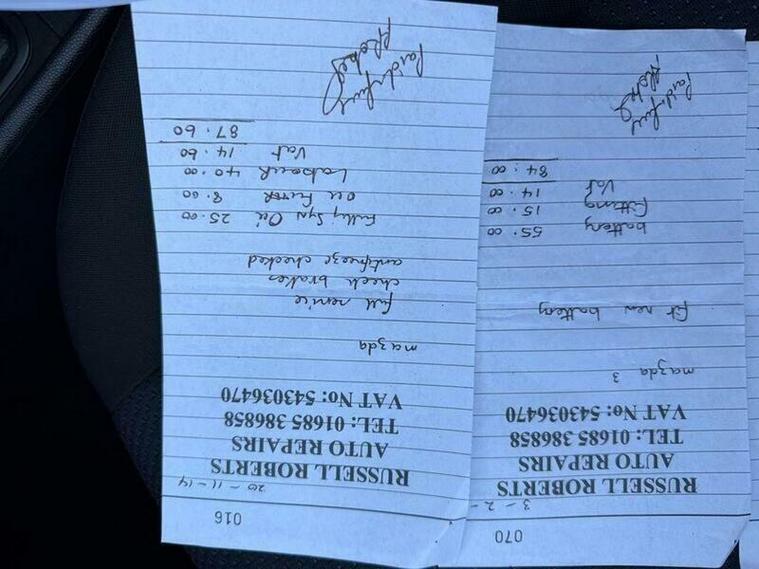 016
20-11-14
RUSSELL ROBERTS
AUTO REPAIRS
TEL: 01685 386858
VAT No: 543036470
mazda
full service
check brakes
antifreeze checked
Fully Syn Oil 25.00
Oil Filter 8.00
Labour 40.00
Vat 14.60
87.60
Paid in full
070
3-2-
RUSSELL ROBERTS
AUTO REPAIRS
TEL: 01685 386858
VAT No: 543036470
mazda 3
fit new battery
battery 55.00
fitting 15.00
Vat 14.00
84.00
Paid in full